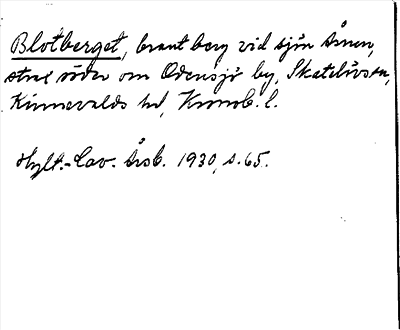 Blotberget, brant berg vid sjön Åsnen,
strax söder om Odensjö by, Skatelövs sn,
Kinnevalds hd, Kronob. l.
Hylt.-Cav. Årsb. 1930, s. 65.